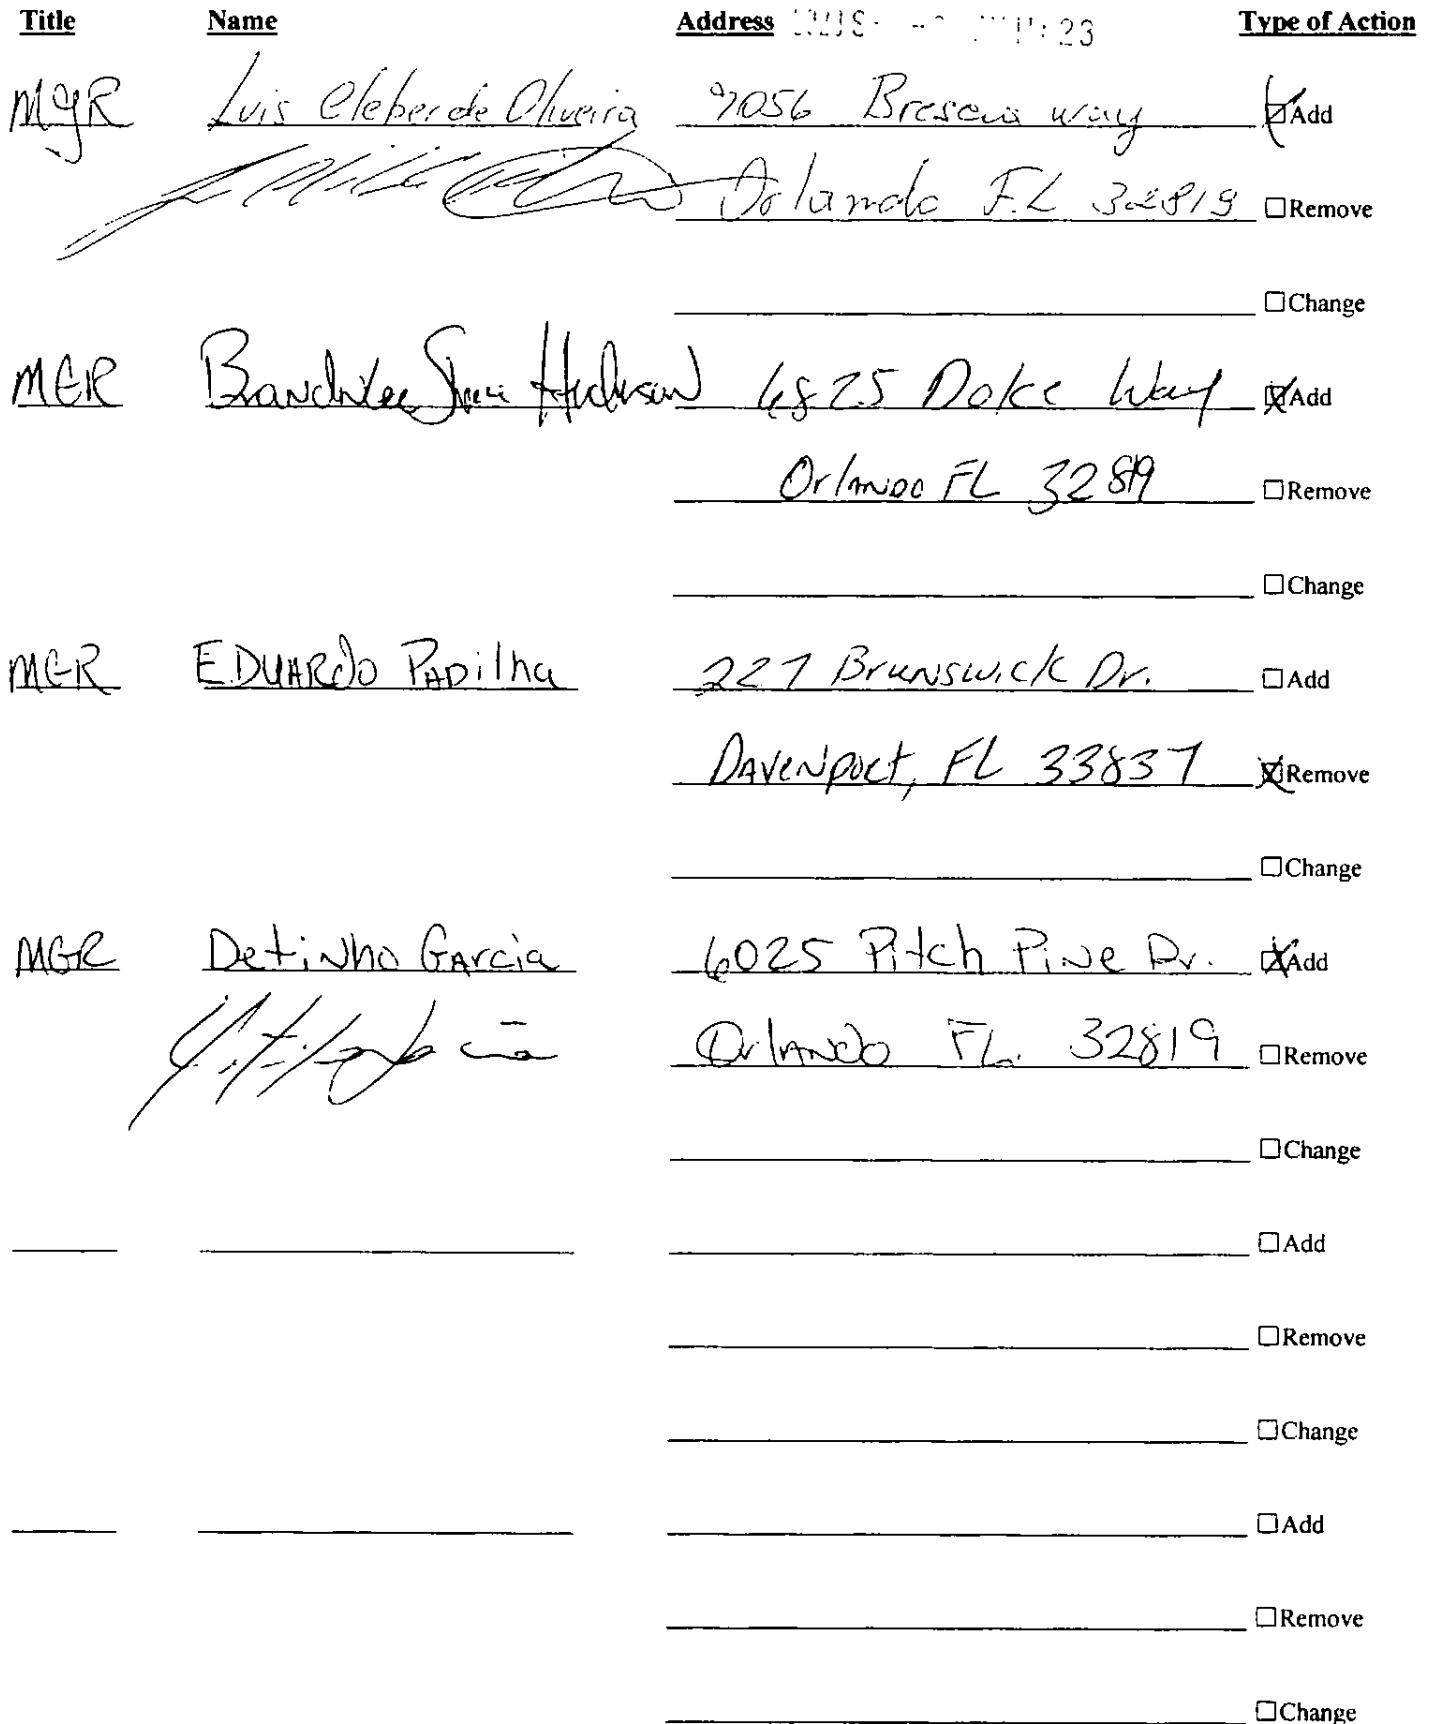 Title Name Address Type of Action
MGR Luis Cleber de Oliveira 7056 Brescia way ☑Add
Orlando FL 32819 ☐Remove
☐Change
MGR 6825 Dolce Way ☒Add
Orlando FL 32819 ☐Remove
☐Change
MGR EDUARdO PADilha 227 Brunswick Dr. ☐Add
DAVENport, FL 33837 ☒Remove
☐Change
MGR DetiNho GArcia 6025 Pitch PiNe Dr. ☒Add
OrlANdO FL. 32819 ☐Remove
☐Change
☐Add
☐Remove
☐Change
☐Add
☐Remove
☐Change